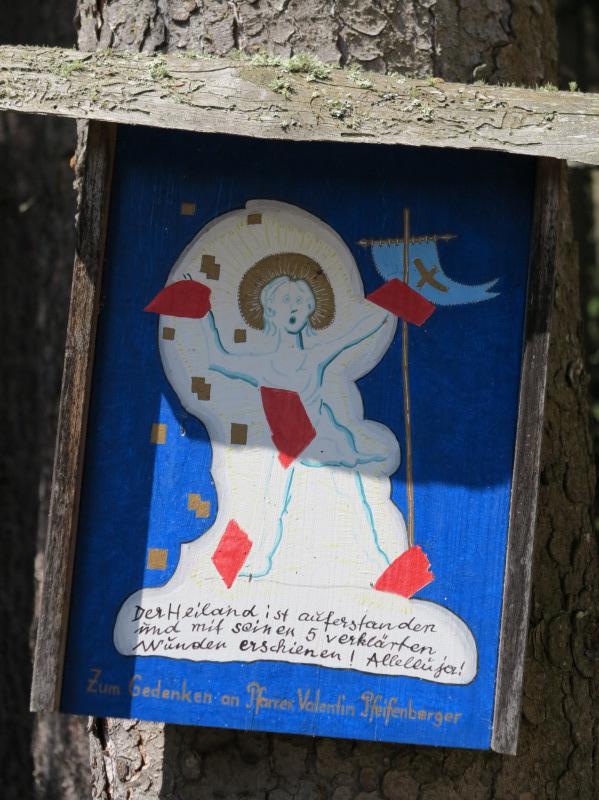 Der Heiland ist auferstanden
und mit seinen 5 verklärten
Wunden erschienen! Allelluja!
Zum Gedenken an Pfarrer Valentin Pfeifenberger